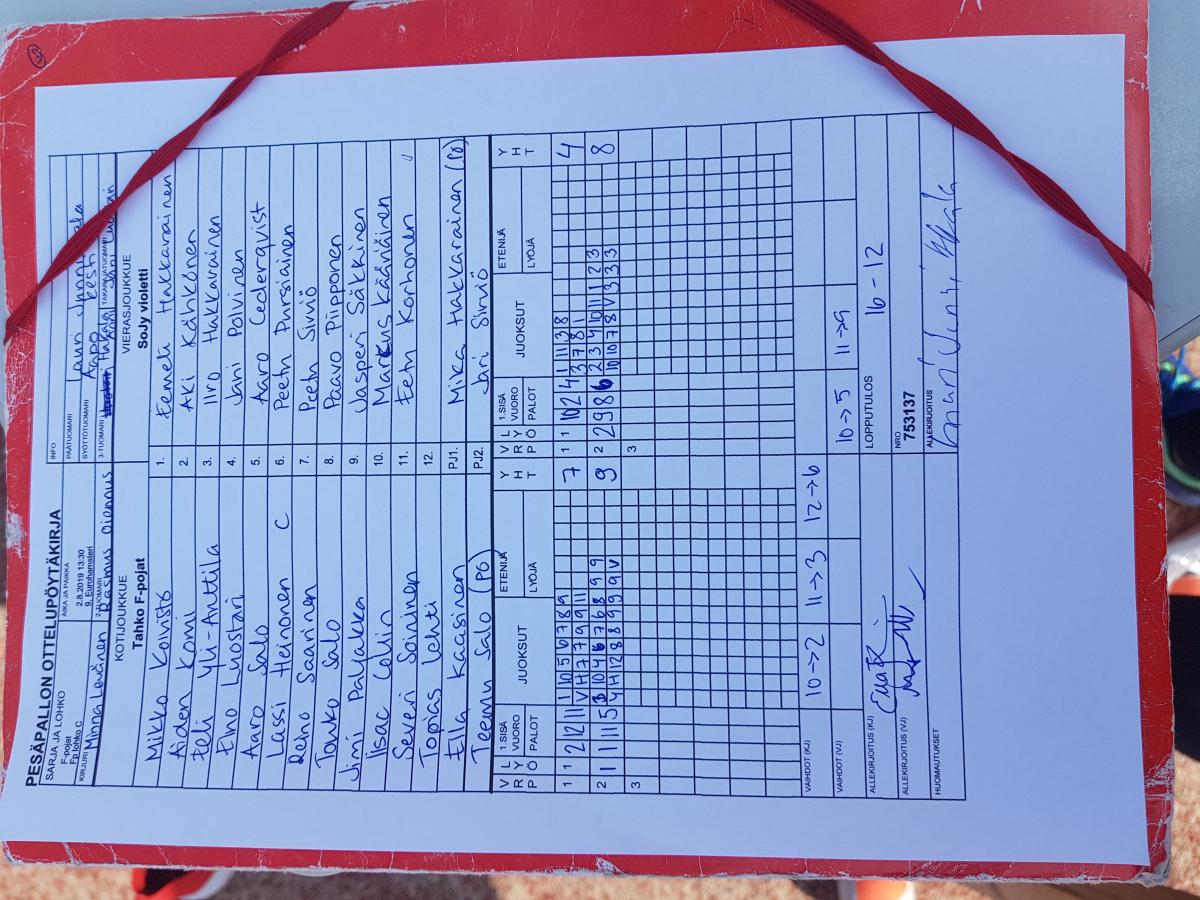 PESÄPALLON OTTELUPÖYTÄKIRJA
SARJA JA LOHKO AIKA JA PAIKKA INFO
F-pojat 2.8.2019 13:30 PÄÄTUOMARI Lauri
Fp lohko C 9. Eurohamsteri SYÖTTÖTUOMARI Aapo
KIRJURI Minna Levänen 2-TUOMARI Rasmus Oiennus 3-TUOMARI TAKARAJATUOMARI
KOTIJOUKKUE VIERASJOUKKUE
Tahko F-pojat SoJy violetti
Mikko Koivisto 1. Eemeli Hakkarainen
Aiden Komi 2. Aki Kähkönen
Eeli Yli-Anttila 3. Iiro Hakkarainen
Eino Luostari 4. Jani Polvinen
Aaro Salo 5. Aaro Cederqvist
Lassi Heinonen C 6. Peetu Pursiainen
Reno Saarinen 7. Peetu Sirviö
Touko Salo 8. Paavo Piipponen
Jimi Paljakka 9. Jasperi Säkkinen
Iisac Colin 10. Markus Kääriäinen
Severi Soininen 11. Eetu Korhonen
Topias Lehti 12.
Ella Kaasinen PJ1. Mika Hakkarainen (PÖ)
Teemu Salo (PÖ) PJ2. Jari Sirviö
V R P L Y Ö 1.SISÄ VUORO PALOT JUOKSUT ETENIJÄ LYÖJÄ Y H T V R P L Y Ö 1.SISÄ VUORO PALOT JUOKSUT ETENIJÄ LYÖJÄ Y H T
1 1 2 12 11 1 10 5 6 7 8 9 7 1 1 10 2 4 1 11 3 8 4
V H 7 7 9 9 11 3 7 8 1
2 1 1 11 5 3 10 4 6 7 6 8 9 9 9 2 2 9 8 6 2 3 4 10 11 1 2 3 8
4 H 12 8 8 9 9 9 V 10 10 7 8 V 3 3 3
3 3
VAIHDOT (KJ) 10→2 11→3 12→6
VAIHDOT (VJ) 10→5 11→9
ALLEKIRJOITUS (KJ) LOPPUTULOS 16-12
ALLEKIRJOITUS (VJ) NRO 753137
HUOMAUTUKSET ALLEKIRJOITUS